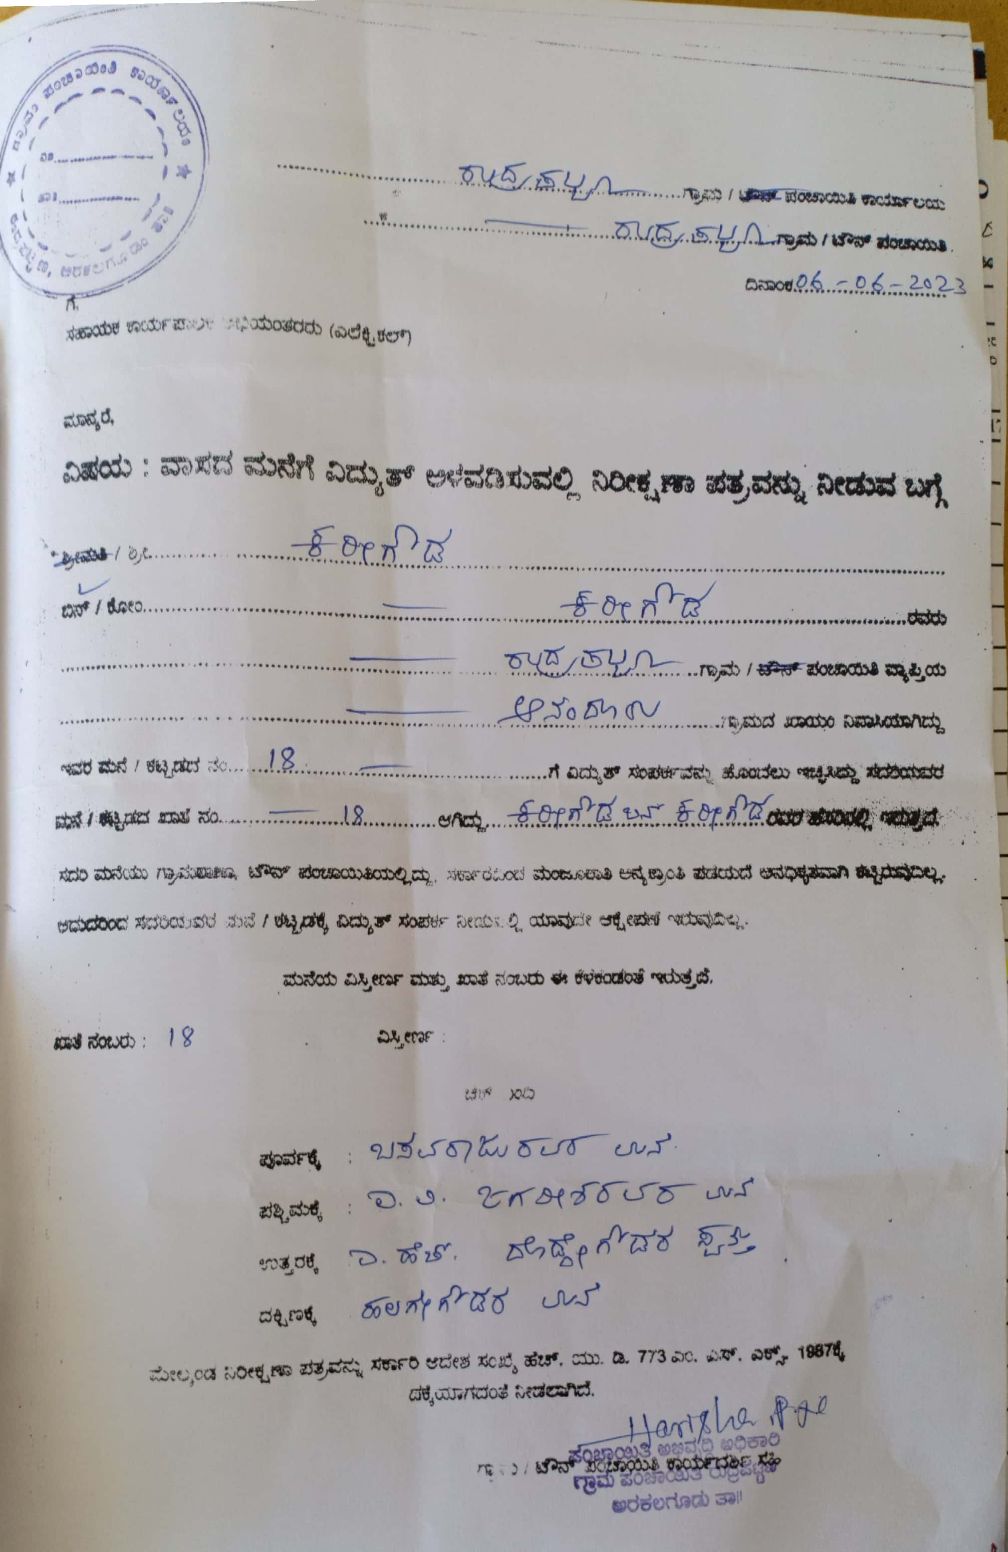 ಗ್ರಾಮ ಪಂಚಾಯಿತಿ ಕಾರ್ಯಾಲಯ
ರುದ್ರಪಟ್ಟಣ, ಅರಕಲಗೂಡು ತಾ॥
ರುದ್ರಪಟ್ಟಣ ಗ್ರಾಮ / ಟೌನ್ ಪಂಚಾಯಿತಿ ಕಾರ್ಯಾಲಯ
ರುದ್ರಪಟ್ಟಣ ಗ್ರಾಮ / ಟೌನ್ ಪಂಚಾಯಿತಿ.
ದಿನಾಂಕ 06-06-2023
ಗೆ,
ಸಹಾಯಕ ಕಾರ್ಯಪಾಲಕ ಅಭಿಯಂತರರು (ಎಲೆಕ್ಟ್ರಿಕಲ್)
ಮಾನ್ಯರೆ,
ವಿಷಯ : ವಾಸದ ಮನೆಗೆ ವಿದ್ಯುತ್ ಅಳವಡಿಸುವಲ್ಲಿ ನಿರೀಕ್ಷಣಾ ಪತ್ರವನ್ನು ನೀಡುವ ಬಗ್ಗೆ
ಶ್ರೀಮತಿ / ಶ್ರೀ ಕರೀಗೌಡ
ಬಿನ್ / ಕೋಂ — ಕರೀಗೌಡ ರವರು
— ರುದ್ರಪಟ್ಟಣ ಗ್ರಾಮ / ಟೌನ್ ಪಂಚಾಯಿತಿ ವ್ಯಾಪ್ತಿಯ
— ಗ್ರಾಮದ ಖಾಯಂ ನಿವಾಸಿಯಾಗಿದ್ದು
ಇವರ ಮನೆ / ಕಟ್ಟಡದ ನಂ. 18 — ಗೆ ವಿದ್ಯುತ್ ಸಂಪರ್ಕವನ್ನು ಹೊಂದಲು ಇಚ್ಛಿಸಿದ್ದು ಸದರಿಯವರ
ಮನೆ / ಕಟ್ಟಡದ ಖಾತೆ ನಂ. — 18 ಆಗಿದ್ದು ಕರೀಗೌಡ ಬಿನ್ ಕರೀಗೌಡ ರವರ ಹೆಸರಿನಲ್ಲಿ ಇರುತ್ತದೆ
ಸದರಿ ಮನೆಯು ಗ್ರಾಮಠಾಣಾ, ಟೌನ್ ಪಂಚಾಯಿತಿಯಲ್ಲಿದ್ದು, ಸರ್ಕಾರದಿಂದ ಮಂಜೂರಾತಿ ಅನ್ಯಕ್ರಾಂತಿ ಪಡೆಯದೆ ಅನಧಿಕೃತವಾಗಿ ಕಟ್ಟಿರುವುದಿಲ್ಲ.
ಆದುದರಿಂದ ಸದರಿಯವರ ಮನೆ / ಕಟ್ಟಡಕ್ಕೆ ವಿದ್ಯುತ್ ಸಂಪರ್ಕ ನೀಡುವಲ್ಲಿ ಯಾವುದೇ ಆಕ್ಷೇಪಣೆ ಇರುವುದಿಲ್ಲ.
ಮನೆಯ ವಿಸ್ತೀರ್ಣ ಮತ್ತು ಖಾತೆ ನಂಬರು ಈ ಕೆಳಕಂಡಂತೆ ಇರುತ್ತದೆ.
ಖಾತೆ ನಂಬರು : 18 ವಿಸ್ತೀರ್ಣ :
ಚೆಕ್ ಬಂದಿ
ಪೂರ್ವಕ್ಕೆ : ಬಸವರಾಜುರವರ ಮನೆ.
ಪಶ್ಚಿಮಕ್ಕೆ : ಎ. ವಿ. ಜಗದೀಶರವರ ಮನೆ
ಉತ್ತರಕ್ಕೆ ಎ. ಹೆಚ್. ದೊಡ್ಡೇಗೌಡರ ಸ್ವತ್ತು
ದಕ್ಷಿಣಕ್ಕೆ ಹಲಗೇಗೌಡರ ಮನೆ
ಮೇಲ್ಕಂಡ ನಿರೀಕ್ಷಣಾ ಪತ್ರವನ್ನು ಸರ್ಕಾರಿ ಆದೇಶ ಸಂಖ್ಯೆ ಹೆಚ್. ಯು. ಡಿ. 773 ಎಂ. ಎಸ್. ಎಕ್ಸ್. 1987ಕ್ಕೆ
ದಕ್ಕೆಯಾಗದಂತೆ ನೀಡಲಾಗಿದೆ.
ಗ್ರಾಮ / ಟೌನ್ ಪಂಚಾಯಿತಿ ಕಾರ್ಯದರ್ಶಿ ಸಹಿ
ಪಂಚಾಯಿತಿ ಅಭಿವೃದ್ಧಿ ಅಧಿಕಾರಿ
ಗ್ರಾಮ ಪಂಚಾಯಿತಿ ರುದ್ರಪಟ್ಟಣ
ಅರಕಲಗೂಡು ತಾ॥